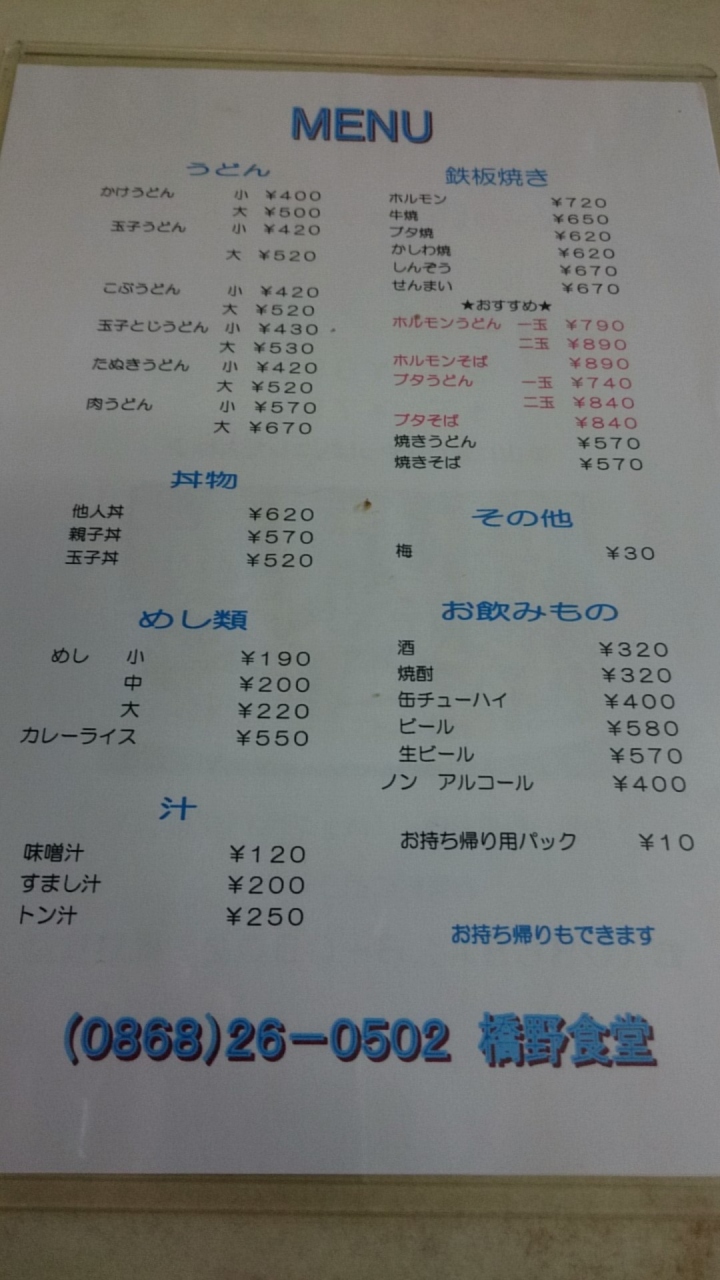 MENU
うどん
かけうどん 小 ¥400
大 ¥500
玉子うどん 小 ¥420
大 ¥520
こぶうどん 小 ¥420
大 ¥520
玉子とじうどん 小 ¥430
大 ¥530
たぬきうどん 小 ¥420
大 ¥520
肉うどん 小 ¥570
大 ¥670
丼物
他人丼 ¥620
親子丼 ¥570
玉子丼 ¥520
めし類
めし 小 ¥190
中 ¥200
大 ¥220
カレーライス ¥550
汁
味噌汁 ¥120
すまし汁 ¥200
トン汁 ¥250
鉄板焼き
ホルモン ¥720
牛焼 ¥650
ブタ焼 ¥620
かしわ焼 ¥620
しんぞう ¥670
せんまい ¥670
★おすすめ★
ホルモンうどん 一玉 ¥790
二玉 ¥890
ホルモンそば ¥890
ブタうどん 一玉 ¥740
二玉 ¥840
ブタそば ¥840
焼きうどん ¥570
焼きそば ¥570
その他
梅 ¥30
お飲みもの
酒 ¥320
焼酎 ¥320
缶チューハイ ¥400
ビール ¥580
生ビール ¥570
ノン アルコール ¥400
お持ち帰り用パック ¥10
お持ち帰りもできます
(0868)26−0502 橋野食堂